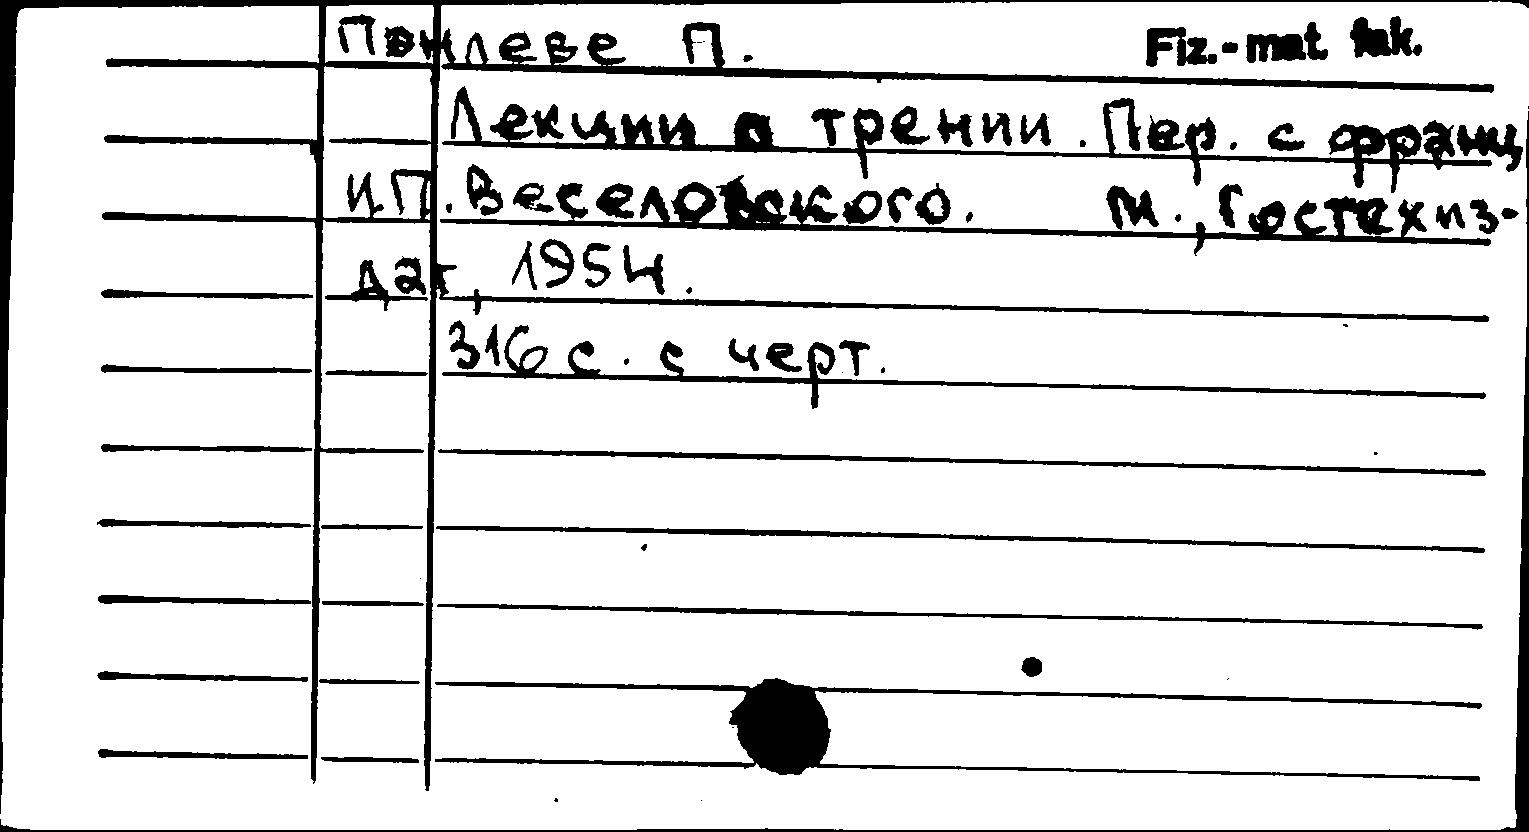 Пэнлеве П. Fiz.-mat. fak.
Лекции о трении. Пер. с франц
И.П. Веселовского. М., Гостехиз-
дат, 1954.
316 с. с черт.